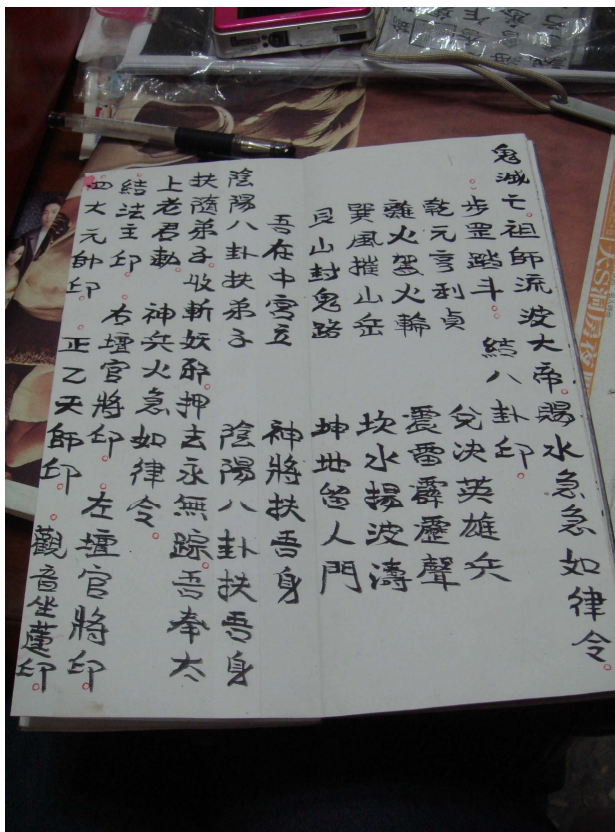 鬼滅亡。祖師流波大帝。賜水急急如律令。
步罡踏斗。 結八卦印。
乾元亨利貞 兌決英雄兵
離火駕火輪 震雷霹靂聲
巽風摧山岳 坎水揚波濤
艮山封鬼路 坤地留人門
吾在中宮立 神將扶吾身
陰陽八卦扶弟子 陰陽八卦扶吾身
扶隨弟子。收斬妖邪。押去永無踪。吾奉太
上老君勅。神兵火急如律令。
結法主印。右壇官將印。左壇官將印。
四大元帥印。正乙天師印。觀音坐蓮印。